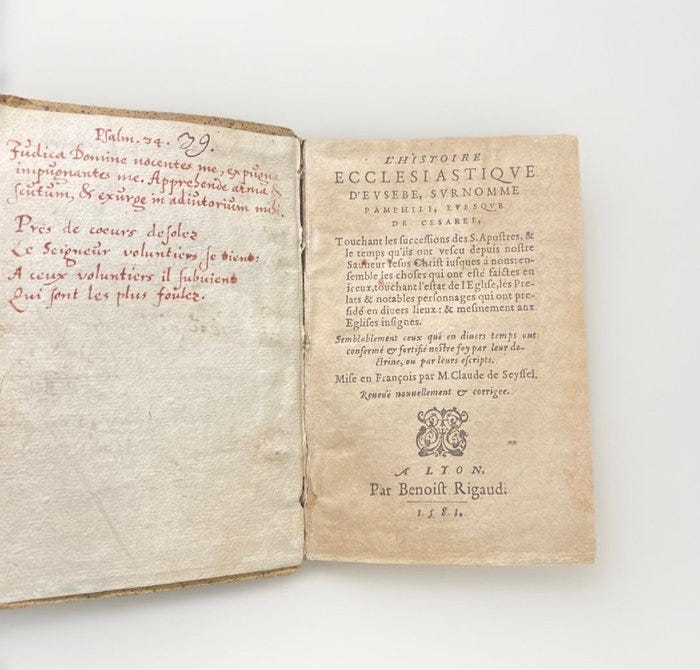 Psalm. 34. 39.
Judica Domine nocentes me, expugna
impugnantes me. Apprehende arma &
scutum, & exurge in adiutorium mihi.
Près de coeurs desolez
Le Seigneur voluntiers se tient:
A ceux voluntiers il subuient
Qui sont les plus foulez.
L'HISTOIRE
ECCLESIASTIQVE
D'EVSEBE, SVRNOMME
PAMPHILI, EVESQVE
DE CESAREE,
Touchant les successions des S. Apostres, &
le temps qu'ils ont vescu depuis nostre
Sauueur Iesus Christ iusques à nous: en-
semble les choses qui ont esté faictes en
iceux, touchant l'estat de l'Eglise, les Pre-
lats & notables personnages qui ont pre-
sidé en diuers lieux: & mesmement aux
Eglises insignes.
Semblablement ceux qui en diuers temps ont
confermé & fortifié nostre foy par leur do-
ctrine, ou par leurs escripts.
Mise en François par M. Claude de Seyssel.
Reueuë nouuellement & corrigee.
A LYON,
Par Benoist Rigaud.
1581.